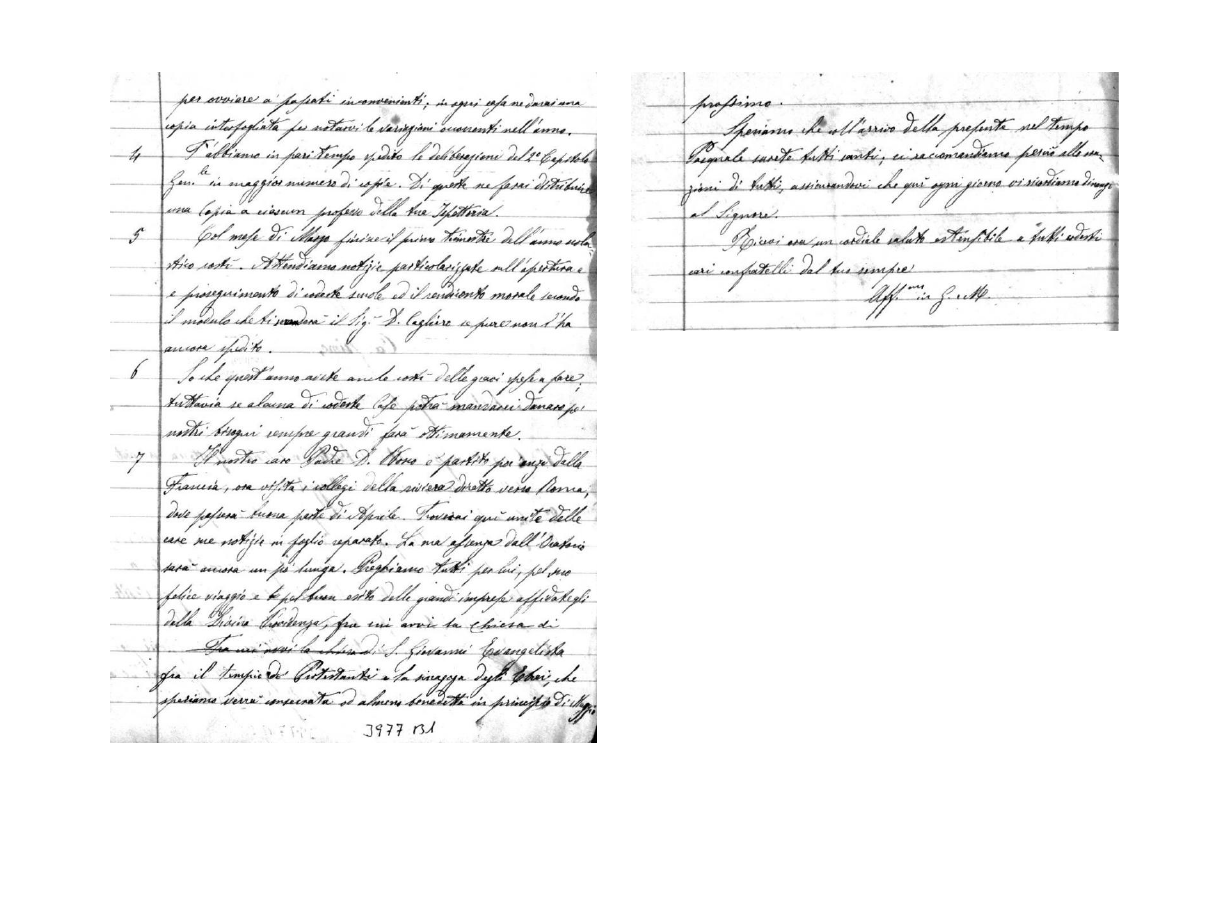 per ovviare a passati inconvenienti; in ogni casa ne darai una
copia interfogliata per notarvi le variazioni occorrenti nell'anno.
4 T'abbiamo in pari tempo spedito le deliberazioni del 2º Capitolo
Gen.le in maggior numero di copie. Di queste ne farai distribuire
una copia a ciascun professo della tua Ispettoria.
5 Col mese di Marzo finisce il primo trimestre dell'anno scola-
stico costì. Attendiamo notizie particolarizzate sull'apertura e
e proseguimento di codeste scuole ed il rendiconto morale secondo
il modulo che ti manderà il Sig.r D. Cagliero se pure non l'ha
ancora spedito.
6 So che quest'anno avete anche costì delle gravi spese a fare;
tuttavia se alcuna di codeste Case potrà mandarci danaro pei
nostri bisogni sempre grandi farà ottimamente.
7 Il nostro caro Padre D. Bosco è partito poi anzi dalla
Francia, ora visita i collegi della riviera diretto verso Roma,
dove passerà buona parte di Aprile. Troverai qui unite delle
care sue notizie in foglio separato. La sua assenza dall'Oratorio
sarà ancora un po' lunga. Preghiamo tutti per lui, pel suo
felice viaggio e pel buon esito delle grandi imprese affidategli
della Divina Provvidenza, fra cui avvi la chiesa di
Fra cui avvi la chiesa di S. Giovanni Evangelista
fra il tempio de' Protestanti e la sinagoga degli Ebrei, che
speriamo verrà consecrata od almeno benedetta in principio di Maggio
3977 B1
prossimo.
Speriamo che coll'arrivo della presente nel tempo
Pasquale sarete tutti santi; ci raccomandiamo perciò alle ora-
zioni di tutti, assicurandovi che qui ogni giorno vi ricordiamo dinanzi
al Signore.
Ricevi ora un cordiale saluto estensibile a tutti codesti
cari confratelli dal tuo sempre
Aff.mo in G. e M.